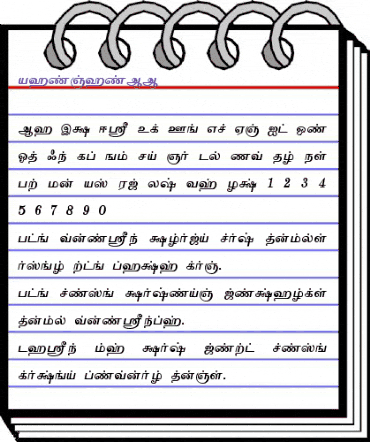 யஹண்ஞ்ஹண்ஆஆ
ஆஹ இக்ஷ ஈஸ்ரீ உக் ஊங் எச் ஏஞ் ஐட் ஒண்
ஓத் ஃந் கப் ஙம் சய் ஞர் டல் ணவ் தழ் நள்
பற் மன் யஸ் ரஜ் லஷ் வஹ் ழக்ஷ் 1 2 3 4
5 6 7 8 9 0
பட்ங் வ்ன்ண்ஸ்ரீந் க்ஷழ்ர்ஜ்ய் ச்ர்ஷ் த்ன்ம்ல்ள்
ர்ஸ்ங்ழ் ற்ட்ங் ப்ஹக்ஷ்ஹ் க்ர்ஞ்.
பட்ங் ச்ண்ஸ்ங் க்ஷர்ஷ்ண்ய்ஞ் ஜ்ண்க்ஷ்ஹழ்க்ள்
த்ன்ம்ல் வ்ன்ண்ஸ்ரீந்ப்ஹ்.
டஹஸ்ரீந் ம்ஹ் க்ஷர்ஷ் ஜ்ண்ற்ட் ச்ண்ஸ்ங்
க்ர்க்ஷ்ங்ய் ப்ண்வ்ன்ர்ழ் த்ன்ஞ்ள்.